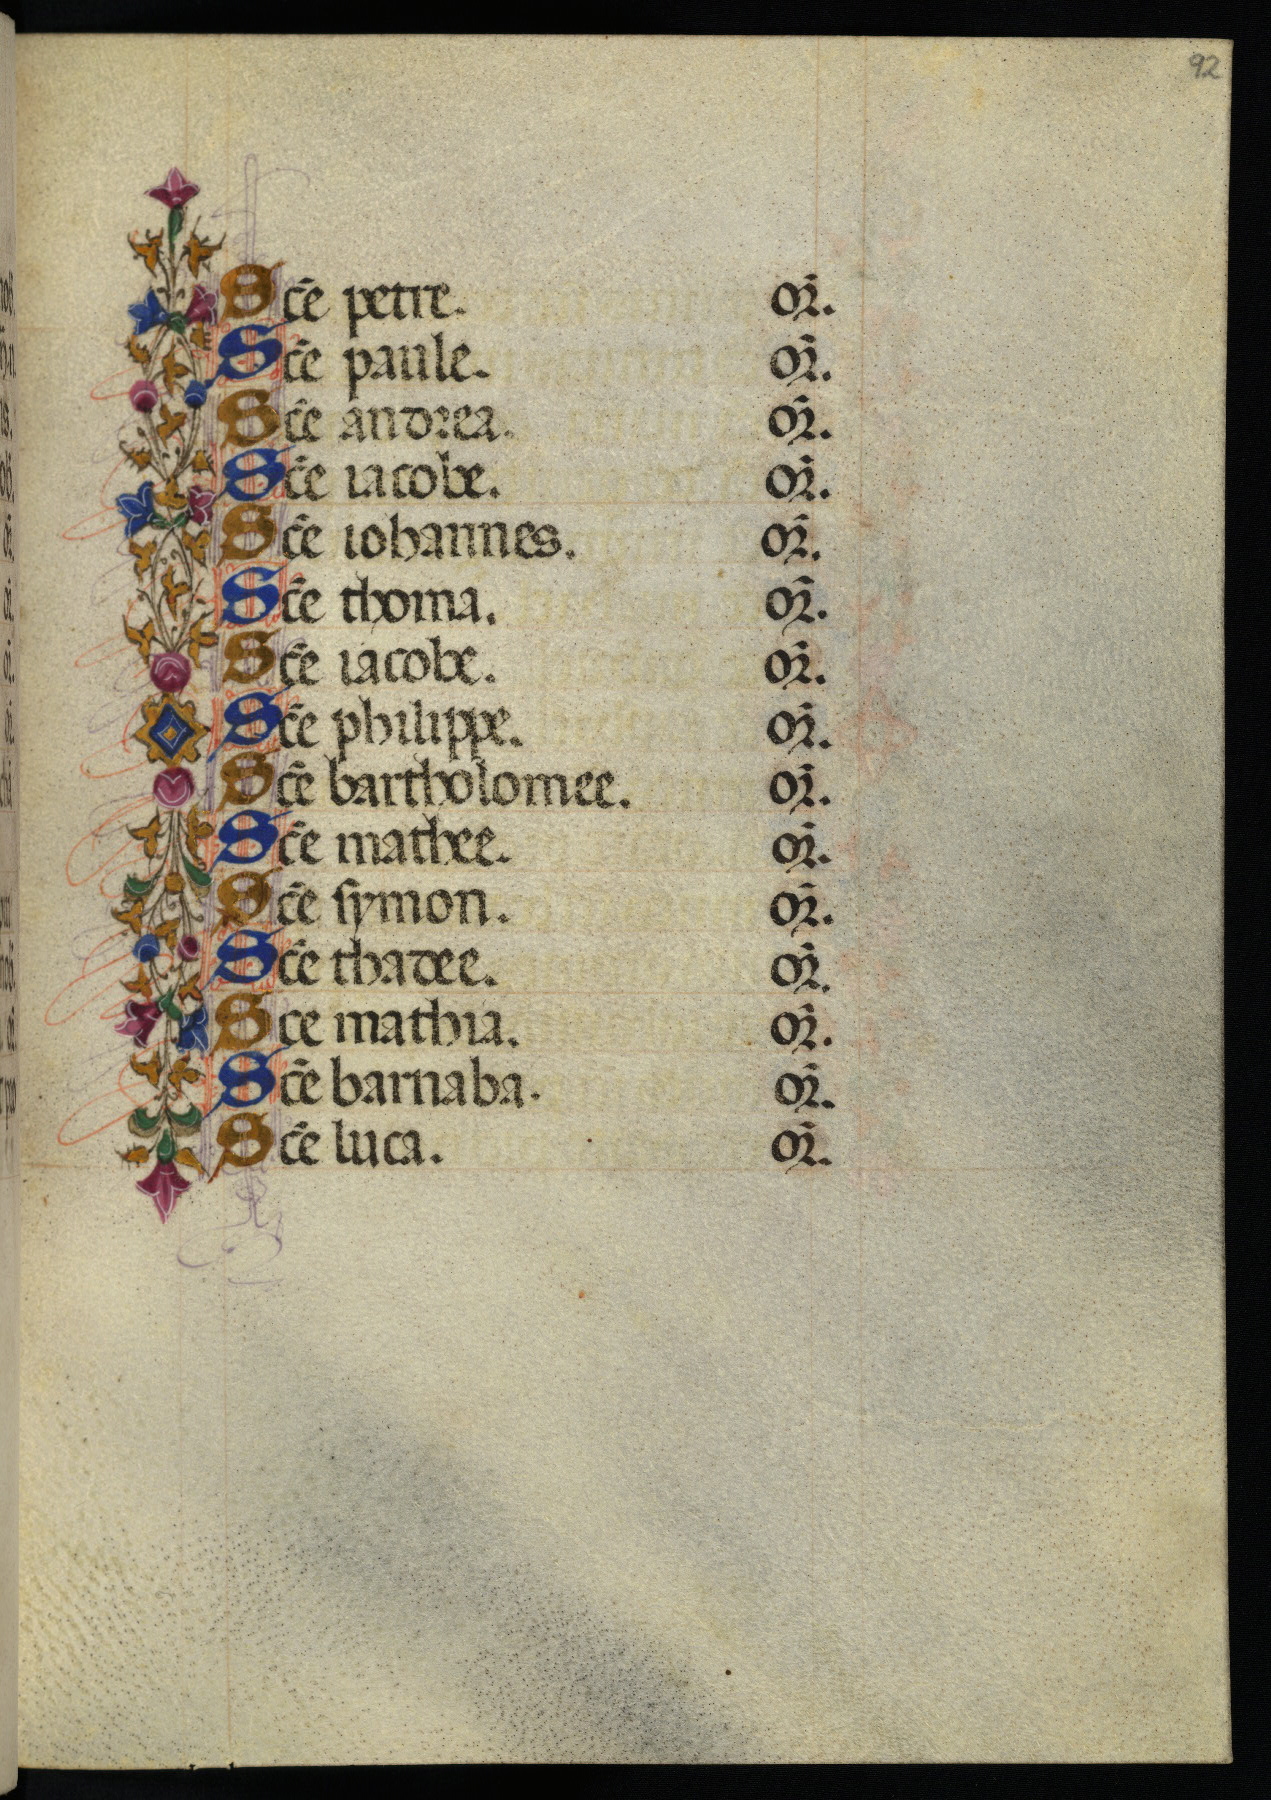 92
Sc̄e petre. or̄.
Sc̄e paule. or̄.
Sc̄e andrea. or̄.
Sc̄e iacobe. or̄.
Sc̄e iohannes. or̄.
Sc̄e thoma. or̄.
Sc̄e iacobe. or̄.
Sc̄e philippe. or̄.
Sc̄e bartholomee. or̄.
Sc̄e mathee. or̄.
Sc̄e symon. or̄.
Sc̄e thadee. or̄.
Sce mathia. or̄.
Sc̄e barnaba. or̄.
Sc̄e luca. or̄.